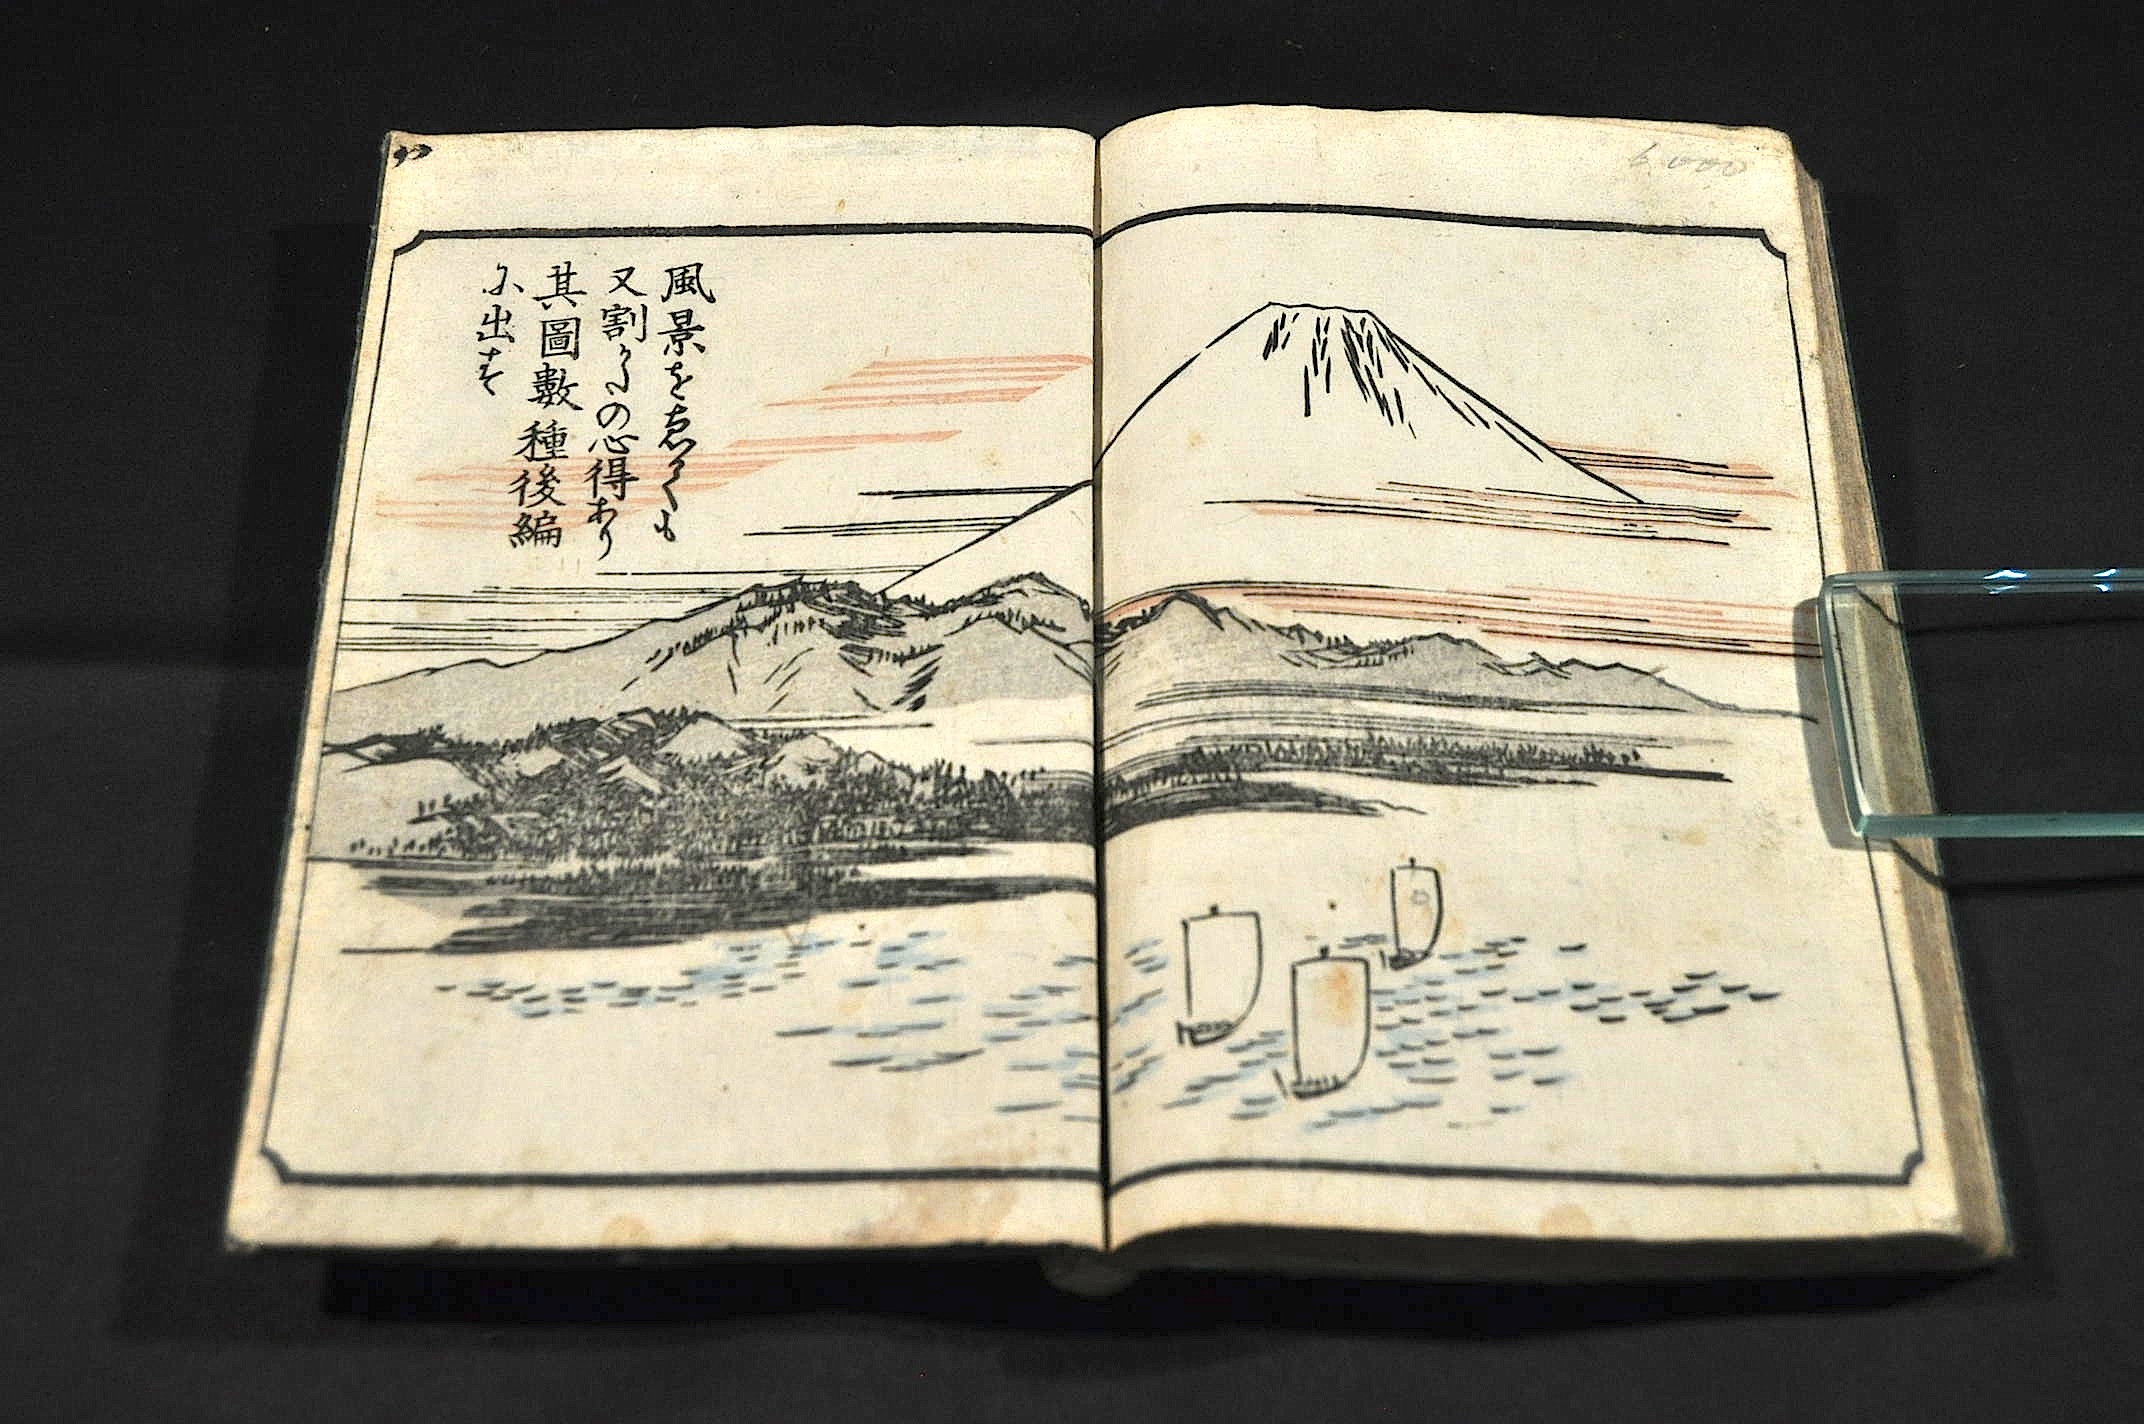 風景をゑがくも
又割かたの心得あり
其圖數種後編
に出す
6000